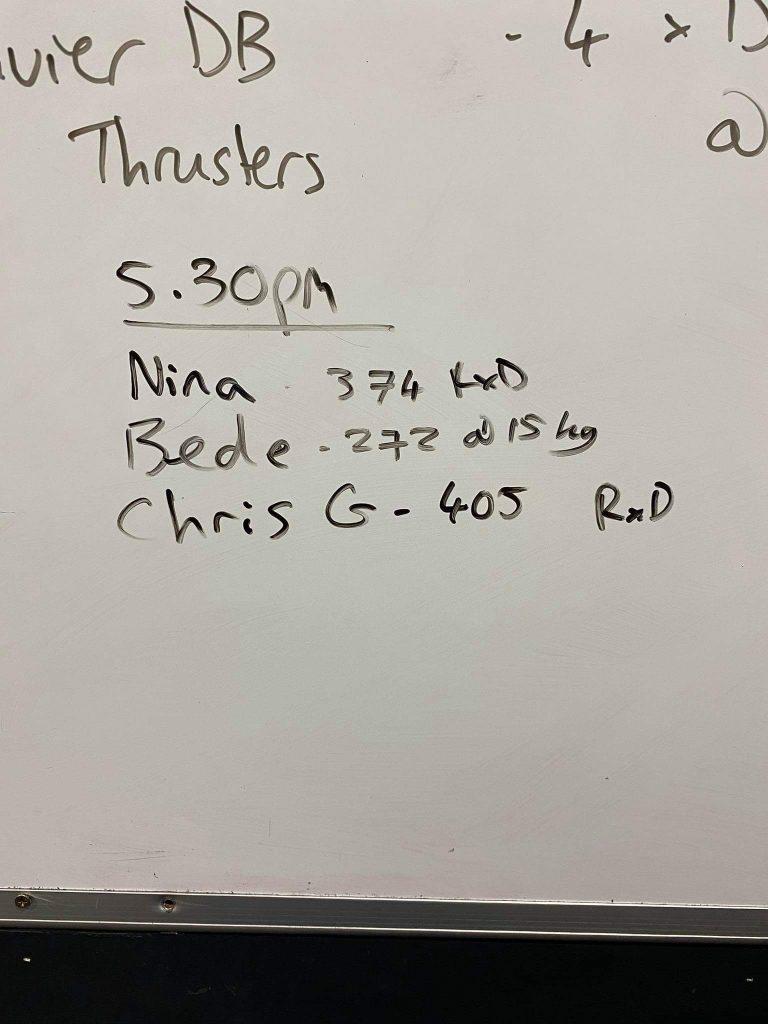 DB
Thrusters
- 4 x
@
5.30pm
Nina - 374 RxD
Bede - 272 @ 15 kg
Chris G - 405 RxD